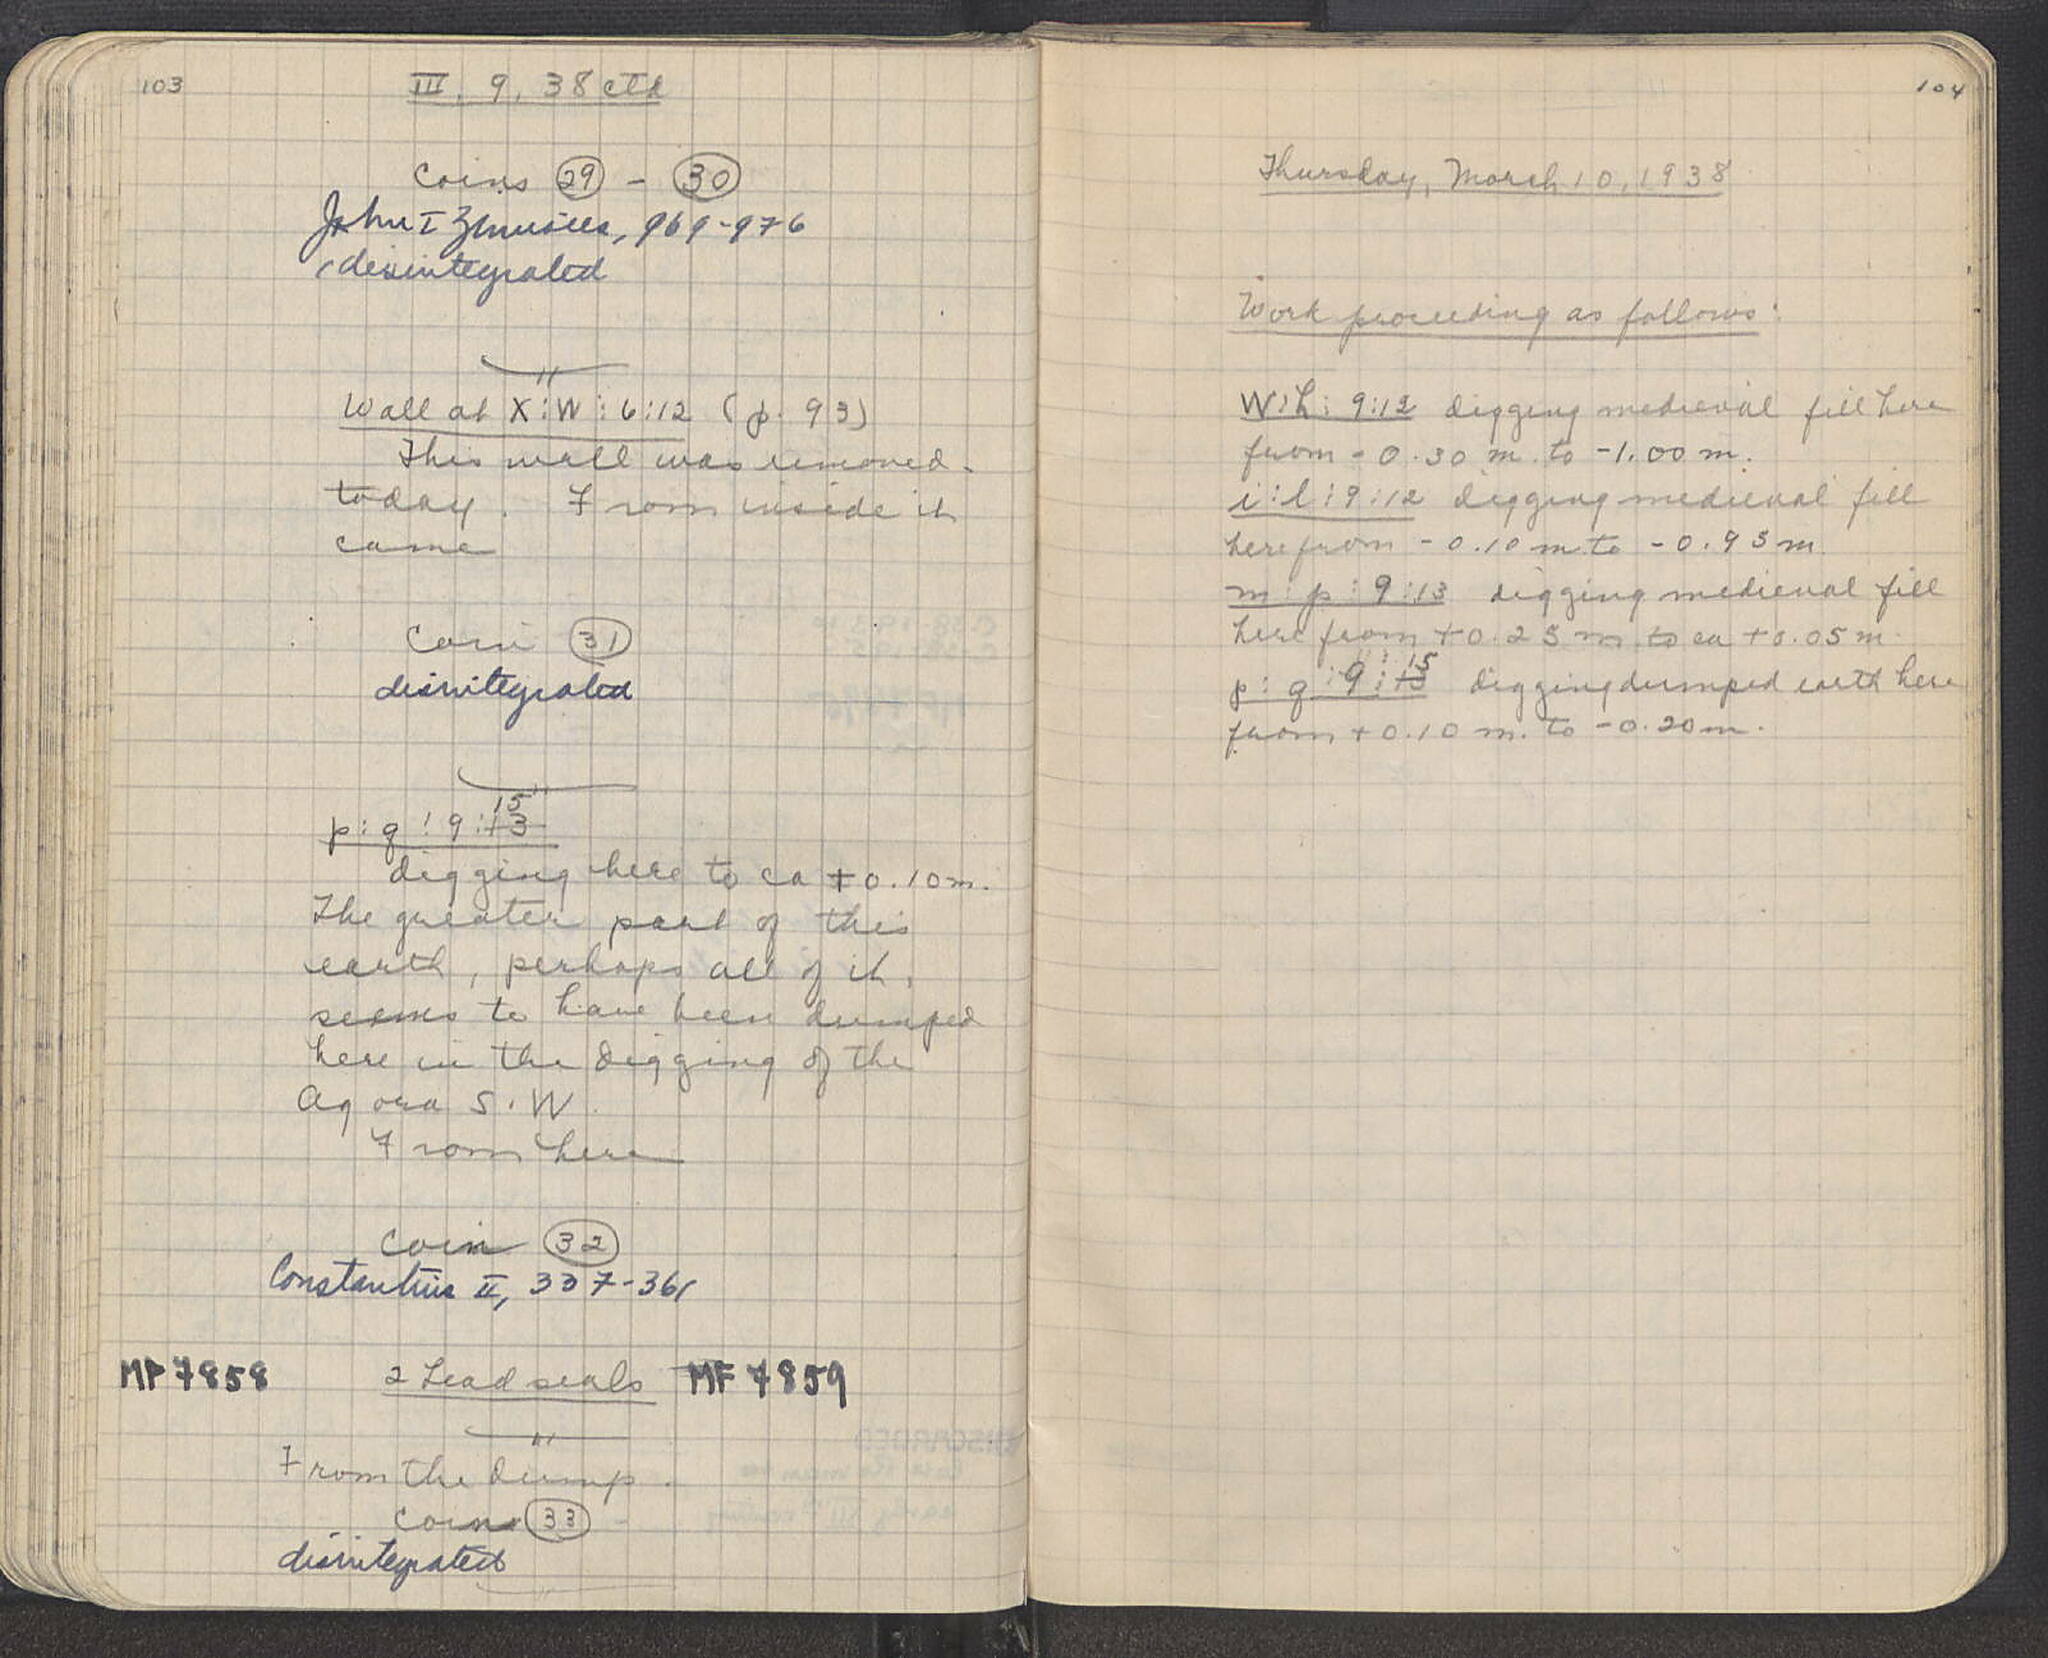 103
III. 9. 38 ctd
Coins 29 - 30
John I Zimisces, 969-976
disintegrated
Wall at X:W:6:12 (p. 93)
This wall was removed
today. From inside it
came
Coin 31
disintegrated
15
p:q:9:13
digging here to ca +0.10m.
The greater part of this
earth, perhaps all of it,
seems to have been dumped
here in the digging of the
Agora S.W.
From here
Coin 32
Constantius II, 337-361
MF 7858 2 Lead seals MF 7859
From the dump.
Coin 33
disintegrated
104
Thursday, March 10, 1938
Work proceeding as follows:
W:h:9:12 digging medieval fill here
from -0.30 m. to -1.00 m.
i:l:9:12 digging medieval fill
here from -0.10 m to -0.93 m
m:p:9:13 digging medieval fill
here from +0.25 m to ca +0.05 m.
15
p:q:9:13 digging dumped earth here
from +0.10 m. to -0.20 m.